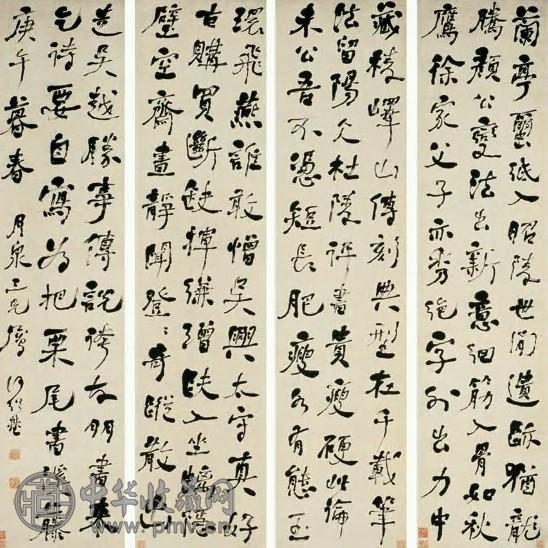 蘭亭蠒紙入昭陵世間遺跡猶龍
騰顏公變法出新意細筋入骨如秋
鷹徐家父子亦秀絕字外出力中
藏稜嶧山傳刻典型在千載筆
法留陽冰杜陵評書貴瘦硬此論
未公吾不憑短長肥瘦各有態玉
環飛燕誰敢憎吳興太守真好
古購買斷缺揮縑繒趺入坐螭隱
壁空齋晝靜聞登〻奇蹤散出
走吳越勝事傳說誇友朋書來
乞詩要自寫為把栗尾書溪藤
庚午暮春 月泉三兄屬 何紹基
中华收藏网
www.pmv.cn